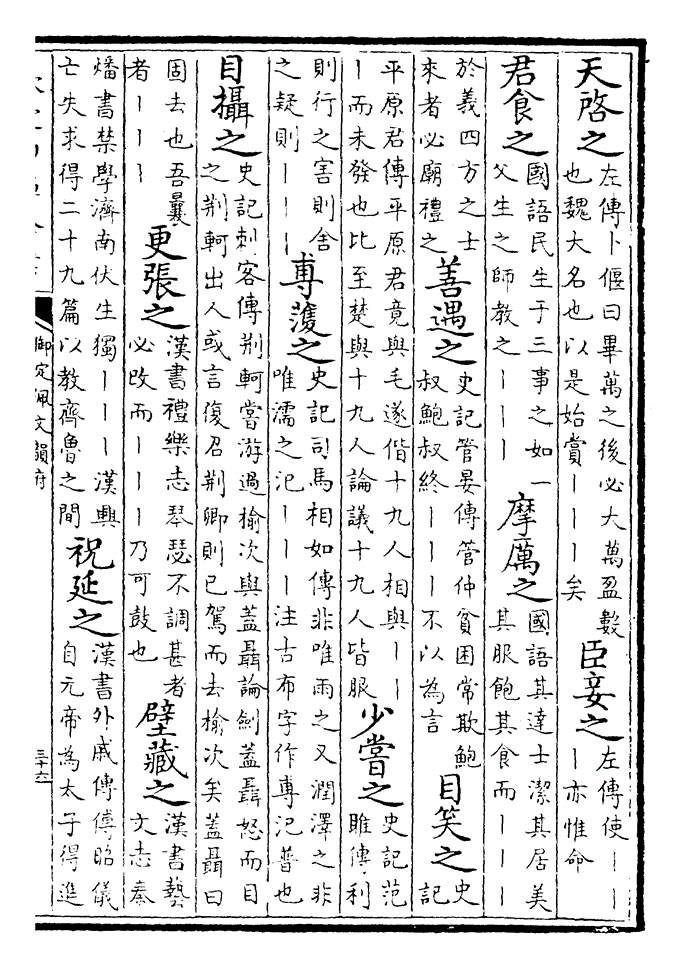 天啓之 左傳卜偃曰畢萬之後必大萬盈數也魏大名也以是始賞丨丨丨矣 臣妾之 左傳使丨丨丨亦惟命
君食之 國語民生于三事之如一父生之師教之丨丨丨 摩厲之 國語其達士潔其居美其服飽其食而丨丨丨
於義四方之士來者必廟禮之 善遇之 史記管晏傳管仲貧困常欺鮑叔鮑叔終丨丨丨不以為言 目笑之 史記
平原君傳平原君竟與毛遂偕十九人相與丨丨丨而未發也比至楚與十九人論議十九人皆服 少嘗之 史記范雎傳利
則行之害則舍之疑則丨丨丨 尃濩之 史記司馬相如傳非唯雨之又潤澤之非唯濡之氾丨丨丨注古布字作尃氾普也
目攝之 史記刺客傳荆軻嘗游過榆次與蓋聶論劍蓋聶怒而目之荆軻出人或言復召荆卿則已駕而去榆次矣蓋聶曰
固去也吾曩者丨丨丨 更張之 漢書禮樂志琴瑟不調甚者必改而丨丨丨乃可鼓也 壁藏之 漢書藝文志秦
燔書禁學濟南伏生獨丨丨丨漢興亡失求得二十九篇以教齊魯之間 祝延之 漢書外戚傳傅昭儀自元帝為太子得進
御定佩文韻府
三十六